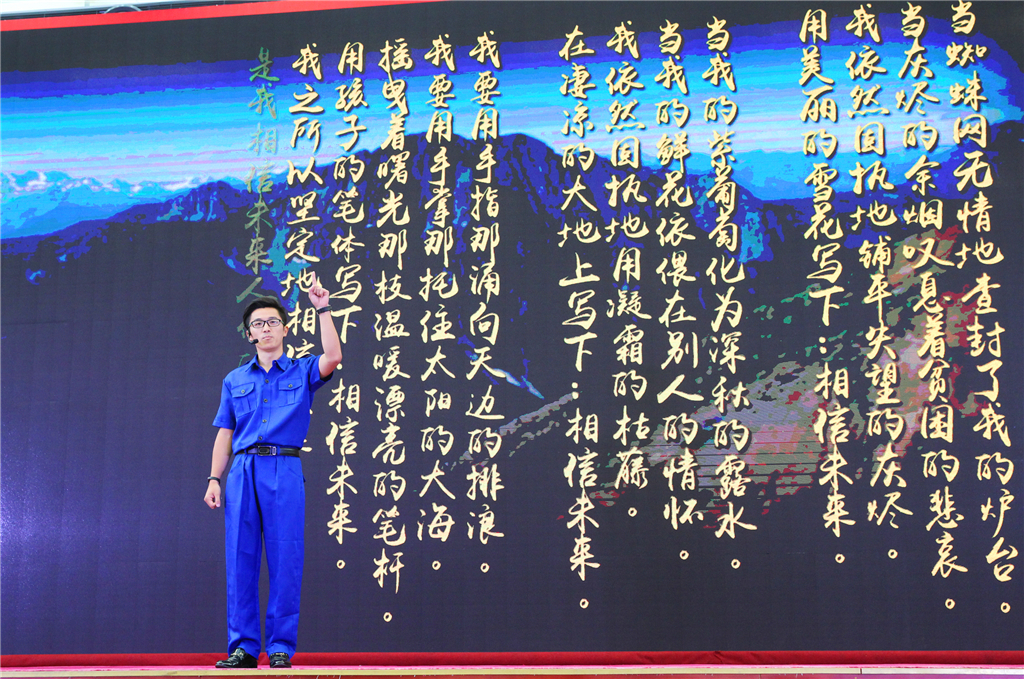 当蜘蛛网无情地查封了我的炉台。
当灰烬的余烟叹息着贫困的悲哀。
我依然固执地铺平失望的灰烬。
用美丽的雪花写下:相信未来。
当我的紫葡萄化为深秋的露水。
当我的鲜花依偎在别人的情怀。
我依然固执地用凝霜的枯藤。
在凄凉的大地上写下:相信未来。
我要用手指那涌向天边的排浪。
我要用手掌那托住太阳的大海。
摇曳着曙光那枝温暖漂亮的笔杆。
用孩子的笔体写下:相信未来。
我之所以坚定地相信
是我相信未来人